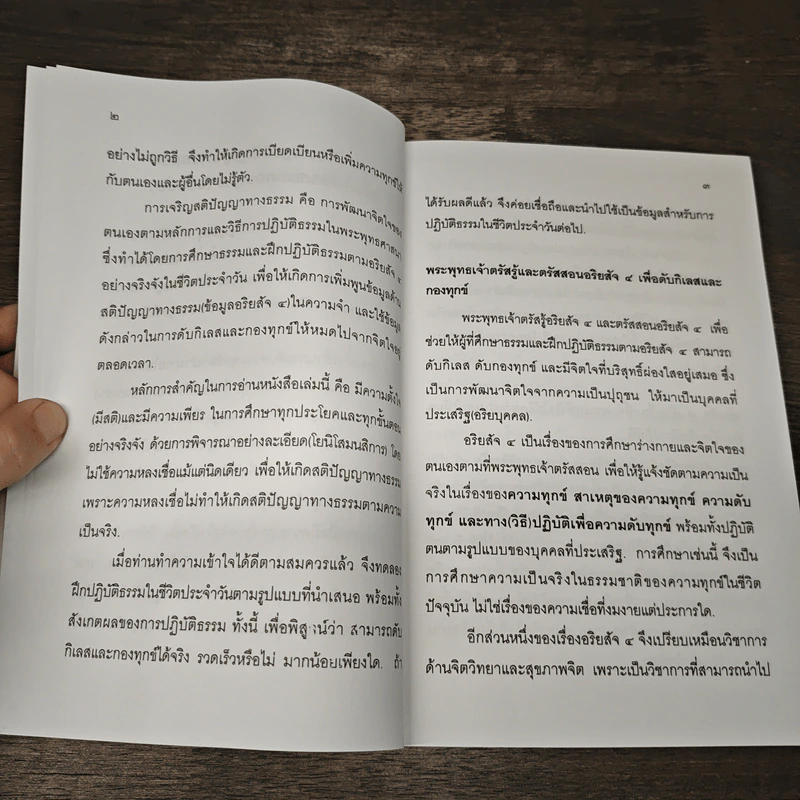 ๒
อย่างไม่ถูกวิธี จึงทำให้เกิดการเบียดเบียนหรือเพิ่มความทุกข์ให้
กับตนเองและผู้อื่นโดยไม่รู้ตัว.
การเจริญสติปัญญาทางธรรม คือ การพัฒนาจิตใจของ
ตนเองตามหลักการและวิธีการปฏิบัติธรรมในพระพุทธศาสนา
ซึ่งทำได้โดยการศึกษาธรรมและฝึกปฏิบัติธรรมตามอริยสัจ ๔
อย่างจริงจังในชีวิตประจำวัน เพื่อให้เกิดการเพิ่มพูนข้อมูลด้าน
สติปัญญาทางธรรม(ข้อมูลอริยสัจ ๔)ในความจำ และใช้ข้อมูล
ดังกล่าวในการดับกิเลสและกองทุกข์ให้หมดไปจากจิตใจอยู่
ตลอดเวลา.
หลักการสำคัญในการอ่านหนังสือเล่มนี้ คือ มีความตั้งใจ
(มีสติ)และมีความเพียร ในการศึกษาทุกประโยคและทุกขั้นตอน
อย่างจริงจัง ด้วยการพิจารณาอย่างละเอียด(โยนิโสมนสิการ) โดย
ไม่ใช้ความหลงเชื่อแม้แต่นิดเดียว เพื่อให้เกิดสติปัญญาทางธรรม
เพราะความหลงเชื่อไม่ทำให้เกิดสติปัญญาทางธรรมตามความ
เป็นจริง.
เมื่อท่านทำความเข้าใจได้ดีตามสมควรแล้ว จึงทดลอง
ฝึกปฏิบัติธรรมในชีวิตประจำวันตามรูปแบบที่นำเสนอ พร้อมทั้ง
สังเกตผลของการปฏิบัติธรรม ทั้งนี้ เพื่อพิสูจน์ว่า สามารถดับ
กิเลสและกองทุกข์ได้จริง รวดเร็วหรือไม่ มากน้อยเพียงใด. ถ้า
๓
ได้รับผลดีแล้ว จึงค่อยเชื่อถือและนำไปใช้เป็นข้อมูลสำหรับการ
ปฏิบัติธรรมในชีวิตประจำวันต่อไป.
พระพุทธเจ้าตรัสรู้และตรัสสอนอริยสัจ ๔ เพื่อดับกิเลสและ
กองทุกข์
พระพุทธเจ้าตรัสรู้อริยสัจ ๔ และตรัสสอนอริยสัจ ๔ เพื่อ
ช่วยให้ผู้ที่ศึกษาธรรมและฝึกปฏิบัติธรรมตามอริยสัจ ๔ สามารถ
ดับกิเลส ดับกองทุกข์ และมีจิตใจที่บริสุทธิ์ผ่องใสอยู่เสมอ ซึ่ง
เป็นการพัฒนาจิตใจจากความเป็นปุถุชน ให้มาเป็นบุคคลที่
ประเสริฐ(อริยบุคคล).
อริยสัจ ๔ เป็นเรื่องของการศึกษาร่างกายและจิตใจของ
ตนเองตามที่พระพุทธเจ้าตรัสสอน เพื่อให้รู้แจ้งชัดตามความเป็น
จริงในเรื่องของความทุกข์ สาเหตุของความทุกข์ ความดับ
ทุกข์ และทาง(วิธี)ปฏิบัติเพื่อความดับทุกข์ พร้อมทั้งปฏิบัติ
ตนตามรูปแบบของบุคคลที่ประเสริฐ. การศึกษาเช่นนี้ จึงเป็น
การศึกษาความเป็นจริงในธรรมชาติของความทุกข์ในชีวิต
ปัจจุบัน ไม่ใช่เรื่องของความเชื่อที่งมงายแต่ประการใด.
อีกส่วนหนึ่งของเรื่องอริยสัจ ๔ จึงเปรียบเหมือนวิชาการ
ด้านจิตวิทยาและสุขภาพจิต เพราะเป็นวิชาการที่สามารถนำไป